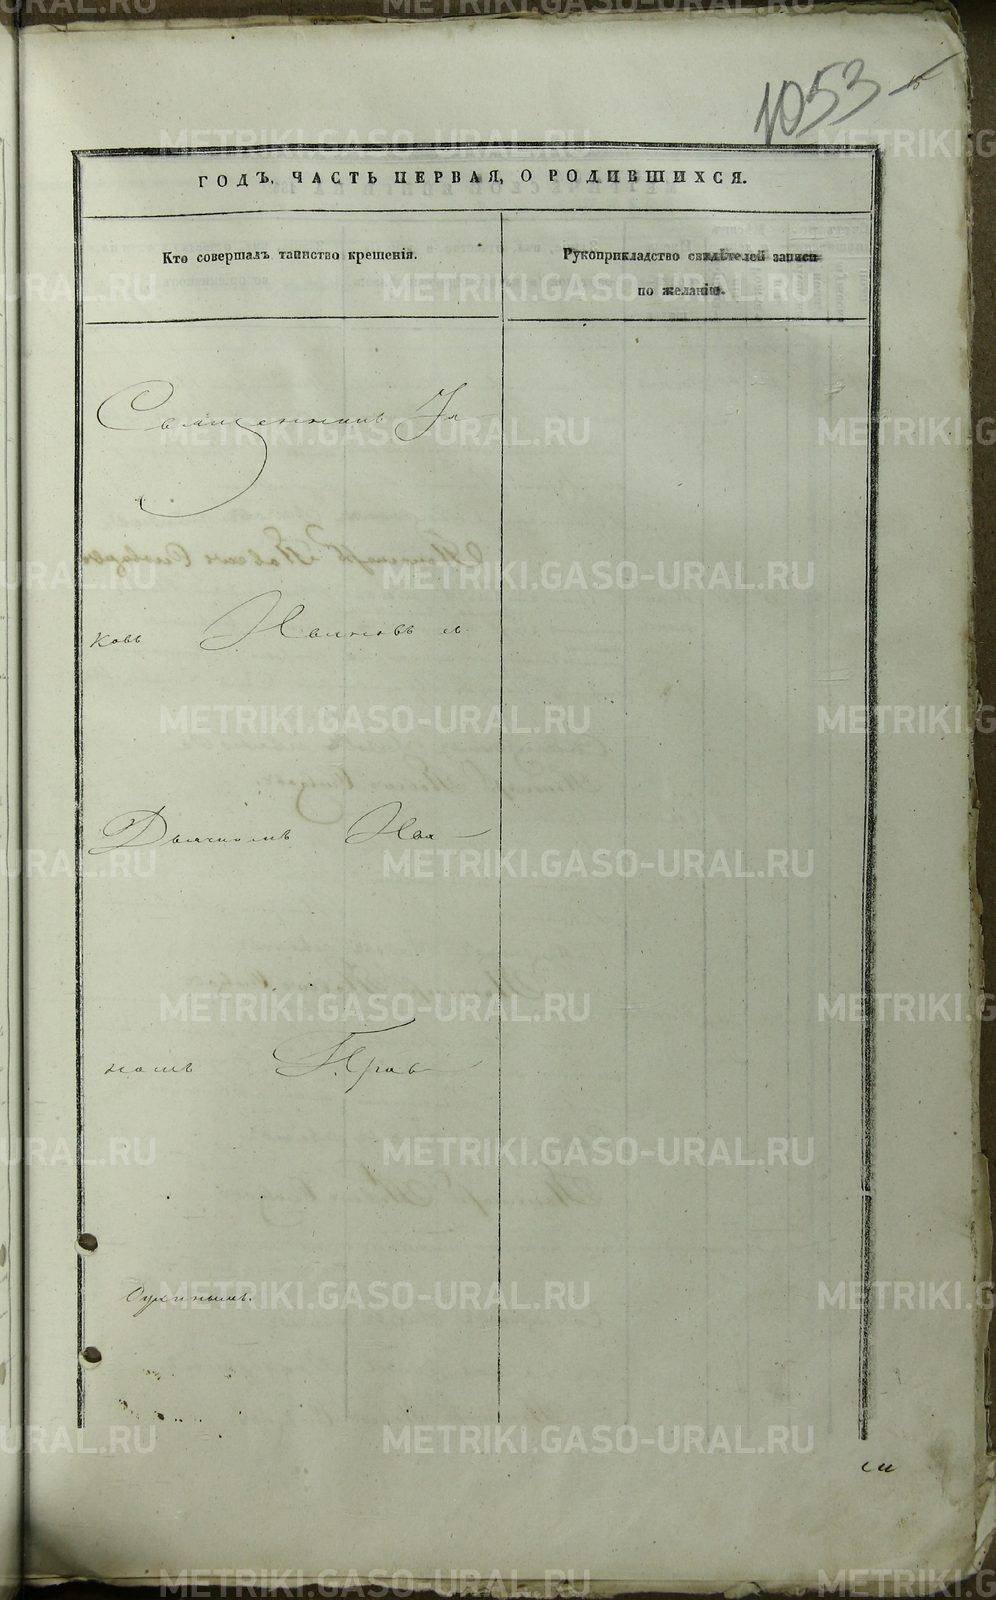 1053
ГОДЪ, ЧАСТЬ ПЕРВАЯ, О РОДИВШИХСЯ.
Кто совершалъ таинство крещенія.
Рукоприкладство свидѣтелей записи
по желанію.
Священникъ Іа
ковъ Ивановъ съ
Дьячкомъ Ива
номъ
METRIKI.GASO-URAL.RU